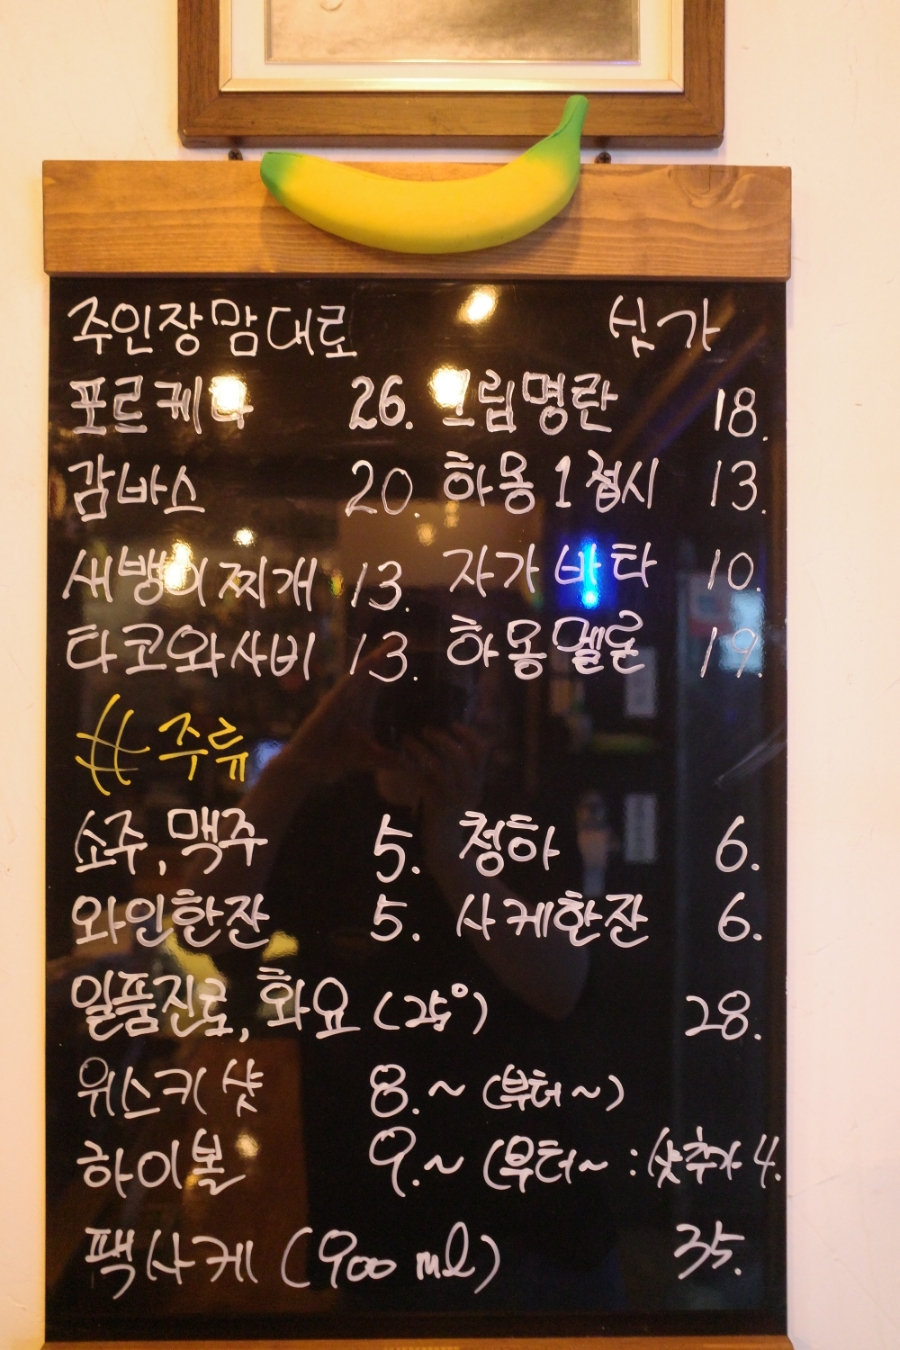 주인장맘대로 싯가
포르케타 26. 크림명란 18.
감바스 20. 하몽1접시 13.
새뱅이찌개 13. 자가바타 10.
타코와사비 13. 하몽멜론 19.
주류
소주, 맥주 5. 청하 6.
와인한잔 5. 사케한잔 6.
일품진로, 화요 (25°) 28.
위스키 샷 8.~ (부터~)
하이볼 9.~ (부터~ : 샷추가 4.
팩사케 (900 ml) 35.